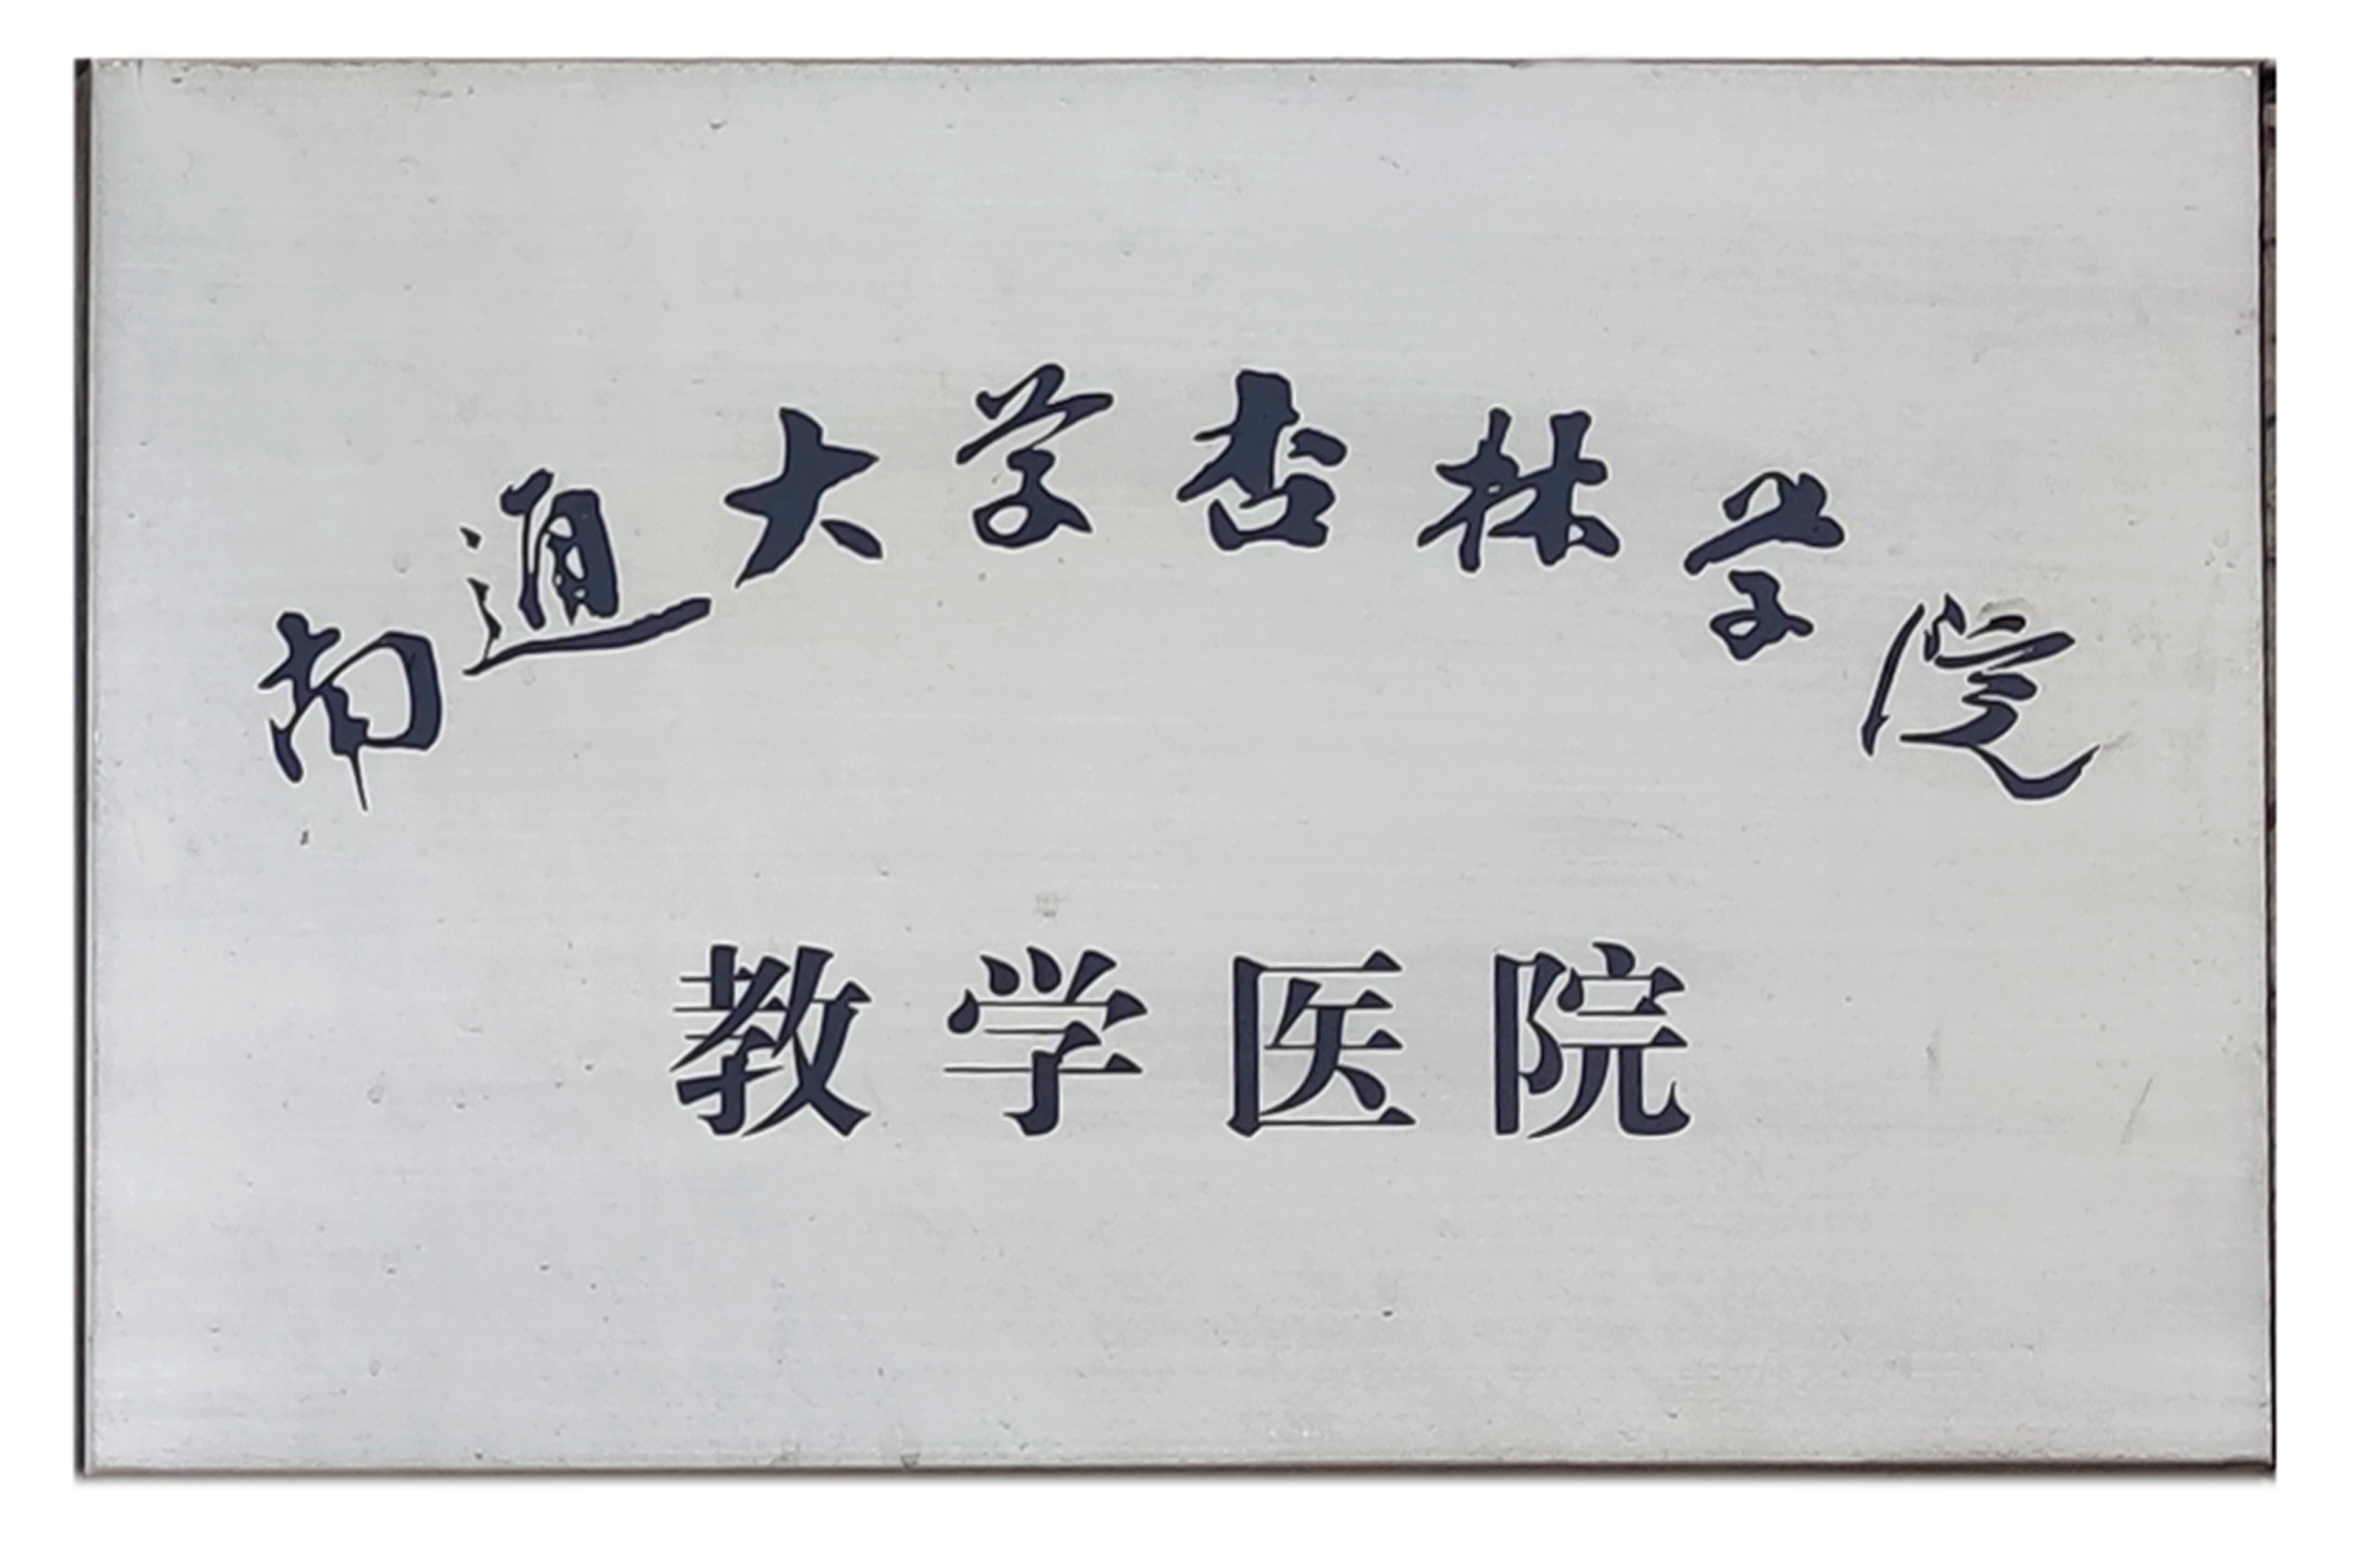 南通大学杏林学院
教学医院